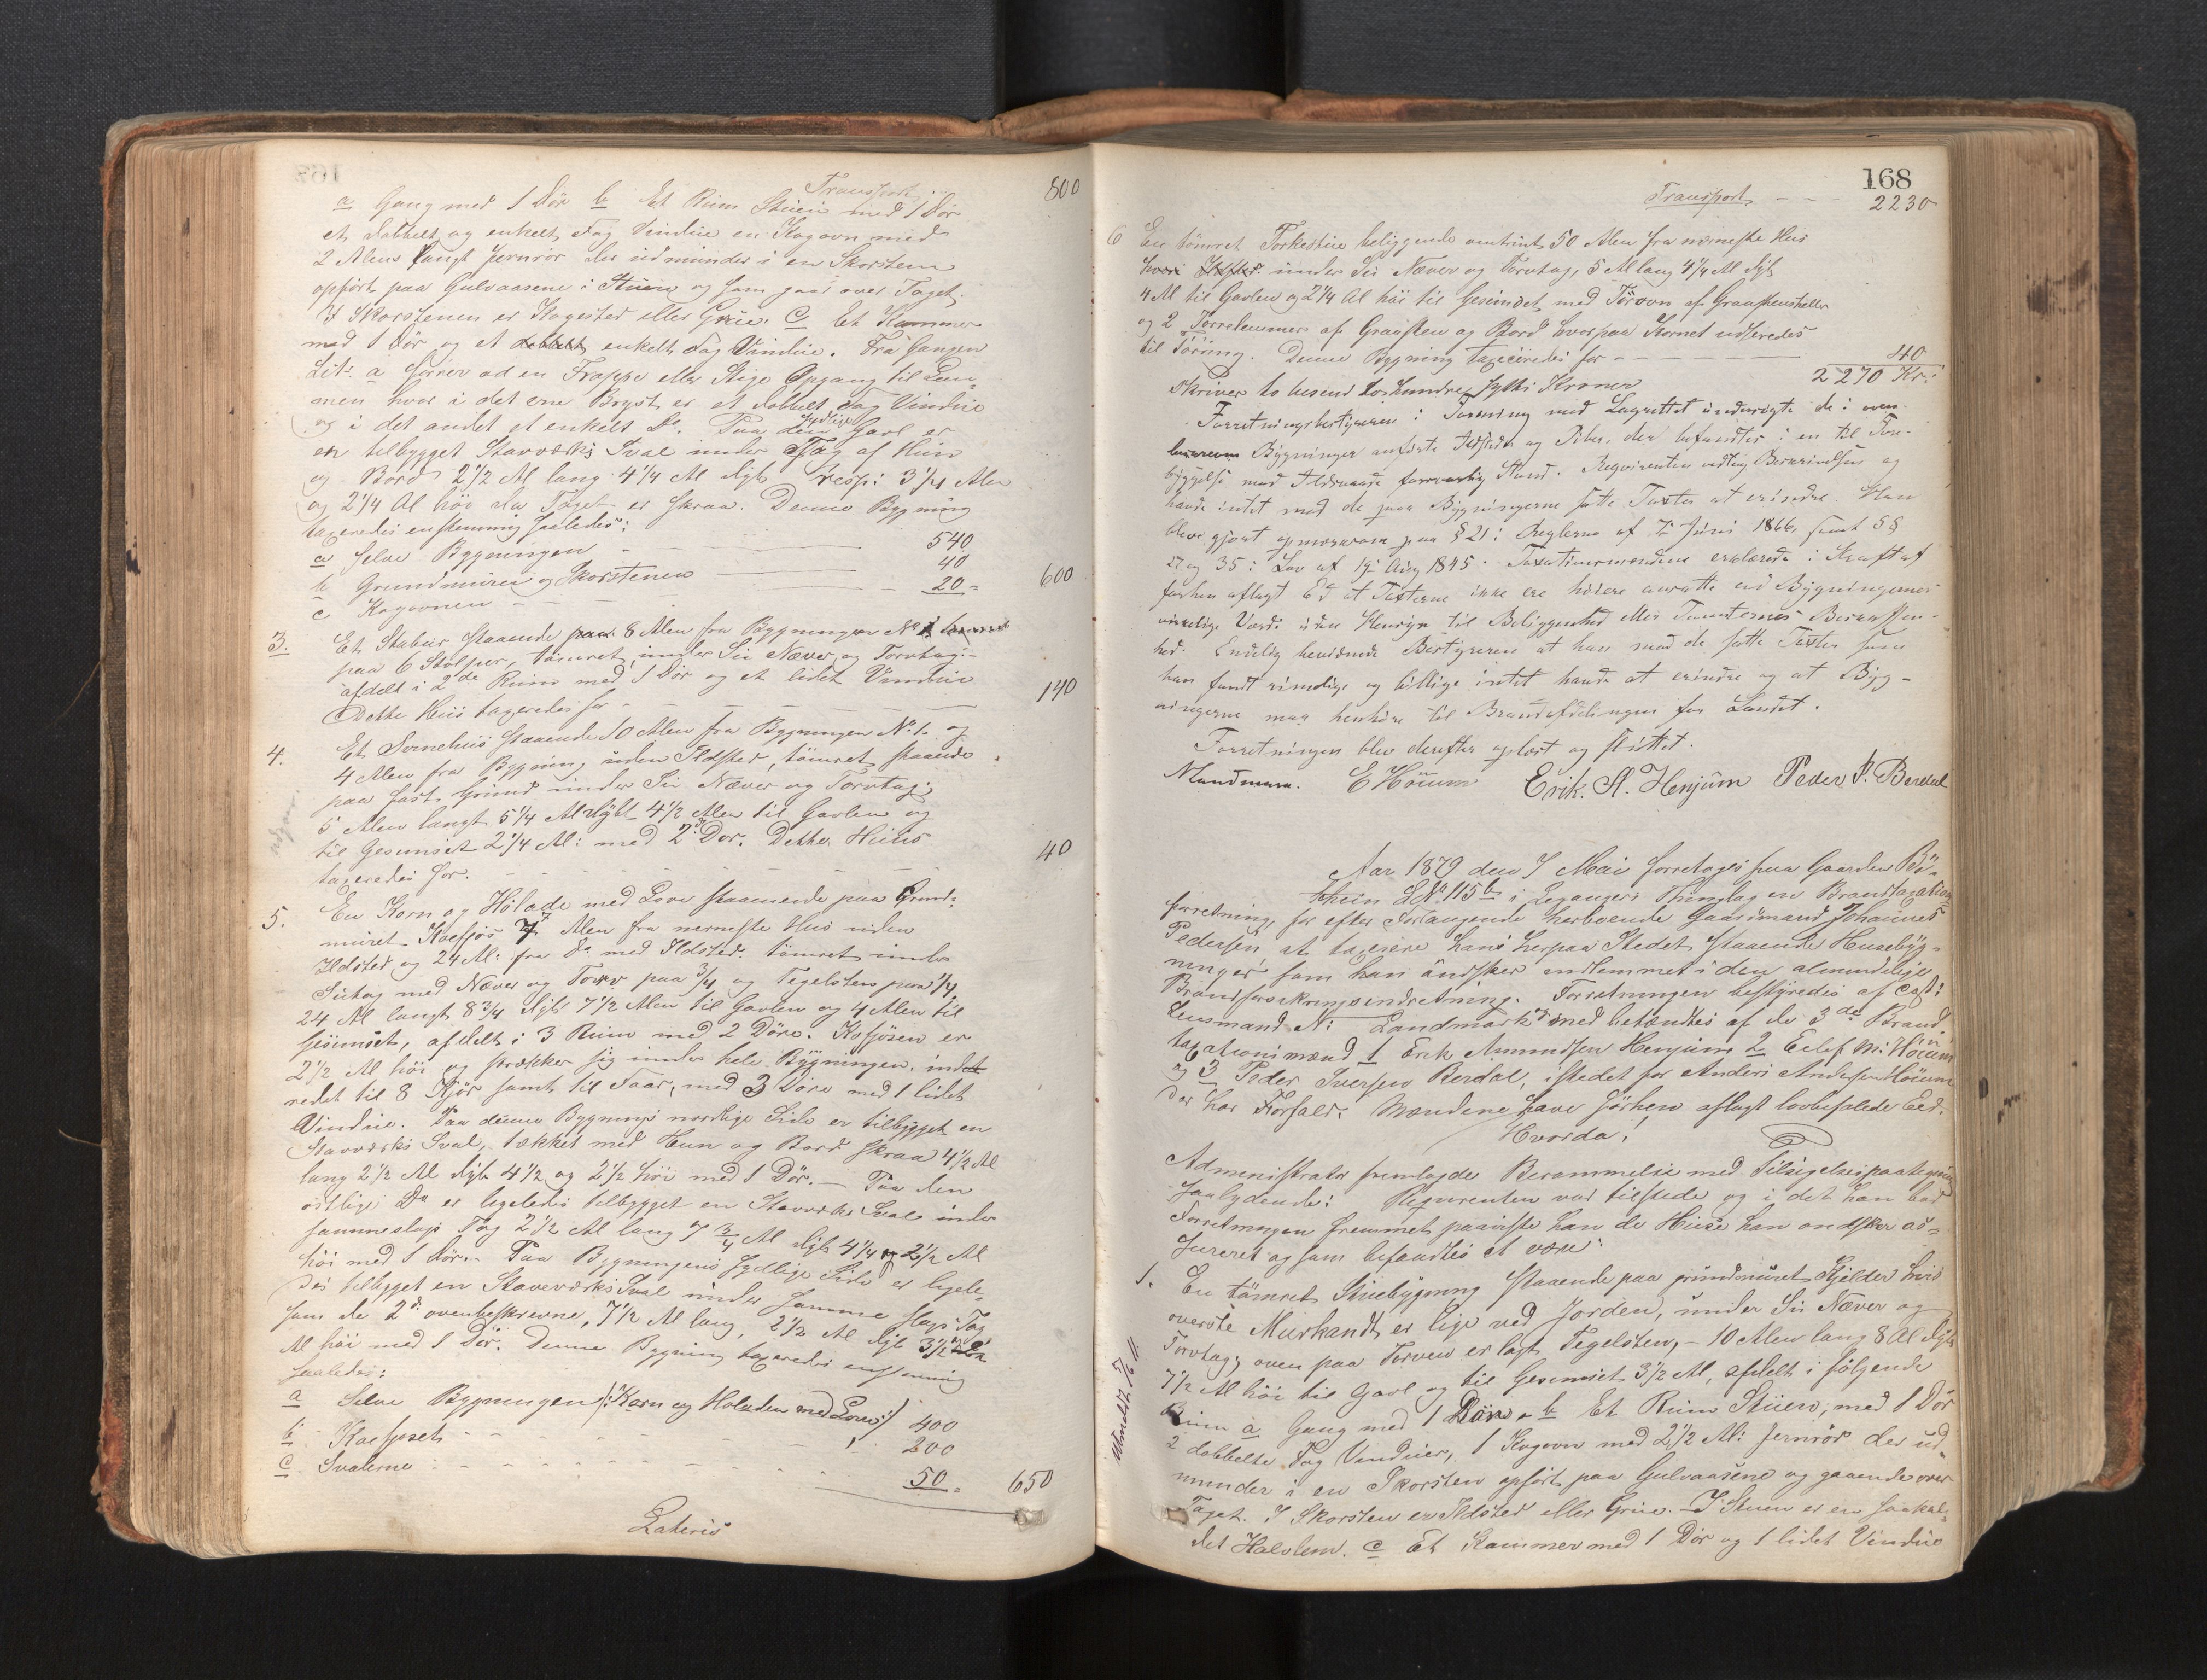 Transport 800
a Gang med 1 Dör b Et Rum Stuen med 1 Dör
et dobbelt og enkelt Fag Vindue en Kogovn med
2 Alens langt Jernrör der udmunder i en Skorsten
opfört paa Gulvaasene i Stuen og som gaar over Taget.
I Skorstenen er Kogested eller Grue. c Et Kammer
med 1 Dör og et dobbelt enkelt Fag Vindue. Fra Gangen
Lit. a förer ad en Trappe eller Stige Opgang til Lem-
men hvor i det ene Bryst er et dobbelt Fag Vindue
og i det andet et enkelt Do. Paa den sydlige Gavl er
en tilbygget Stavværks Sval under Tag af Hun
og Bord 2 1/2 Al lang 4 1/4 Al dyb resp: 3 1/4 Alen
og 2 1/4 Al höi da Taget er skraa. Denne Bygning
taxeredes enstemmig saaledes:
a Selve Bygningen 540
b Grundmuren og Skorstenen 40
c Kogovnen 20 = 600
3. Et Stabur staaende paa 8 Alen fra Bygningen No 1
paa 6 Stolper, tömret under Su Næver og Torvtag;
afdelt i 2de Rum med 1 Dör og et lidet Vindue
Dette Hus taxeredes for 140
4. Et Sornehus staaende 10 Alen fra Bygningen No 1. og
4 Alen fra Bygning uden Ildsted, tömret staaende
paa fast Grund under Su Næver og Torvtag;
5 Alen langt 5 1/4 Al dybt 4 1/2 Alen til Gavlen og
til Gesimset 2 1/4 Al: med 2 Dör. Dette Huus
taxeredes for. 40
5. En Korn og Hölade med Love staaende paa Grund-
muret Koefjös 7 Alen fra nærneste Hus uden
Ildsted og 24 Al: fra Do med Ildsted. tömret under
Sutag med Næver og Torv paa 3/4 og Tegelsten paa 1/4,
24 Al langt 8 3/4 dyb 7 1/2 Alen til Gavlen og 4 Alen til
Gesimset, afdelt i 3 Rum med 2 Döre. Kofjösen er
2 1/2 Al höi og strækker sig under hele Bygningen. ind
redet til 8 Kjör samt til Faar, med 3 Döre med 1 lidet
Vindue. Paa denne Bygnings nordlige Side er tilbygget en
Stavværks Sval, tækket med Hun og Bord skraa 4 1/2 Al
lang 2 1/2 Al dyb 4 1/2 og 2 1/2 höi med 1 Dör. — Paa den
östlige Do er legeledes tilbygget en Stavværks Sval under
sammeslags Tag 2 1/2 Al lang 7 3/4 Al dyb 4 1/4 og 2 1/2 Al
höi med 1 Dör. Paa Bygningens sydlige Side er legele-
des tilbygget en Stavværks Sval under samme slags Tag
som de 2de ovenbeskrevne, 7 1/2 Al lang, 2 1/2 Al dyb 3 1/2
Al höi med 1 Dör. Denne Bygning taxeredes enstemmig
saaledes:
a Selve Bygningen /: Korn og Holaden med Love :/ 400
b Koefjöset 200
c Svalerne 50 = 650
Lateris
168
Transport 2230
6 En tömret Torkestue beliggende omtrint 50 Alen fra nærneste Hus
hvori under Su Næver og Torvtag, 5 Al lang 4 1/4 Al dyb
4 Al til Gavlen og 2 1/4 Al höi til Gesimset med Törovn af Graastensheller
og 2 Törrelemmer af Graasten og Bord hvorpaa Kornet udspredes
til Törring. Denne Bygning taxeredes for 40
2270 Kr:
Skriver to tusend to hundre Sytti Kroner
Forretningsbestyreren i Forening med Lagrettet undersögte de i oven
Bygninger anförte Ildsteder og Piber, der befandtes i en til Fore-
byggelse mod Ildsvaade forsvarlig Stand. Reqvirenten vedtog Beskrivelsen og
havde intet mod de paa Bygningerne satte Taxter at erindre. Han
blev gjort opmærksom paa § 21 i Reglerne af 7 Juni 1866, samt §§
27 og 35 i Lov af 19 Aug 1845. Taxationsmændene erklærede i Kraft af
forhen aflagt Ed at Taxterne ikke ere höiere ansatte end Bygningernes
virkelige Værdi uden Hensyn til Beliggenhed eller Tomternes Beskaffen-
hed. Endelig bevidnede Bestyreren at han mod de satte Taxter som
han fandt rimelige og billige intet havde at erindre og at Byg-
ningerne maa henhöre til Brandafdelingen for Landet.
Forretningen blev derefter oplæst og sluttet.
Landmark. E Höium Erik. A. Henjum Peder I. Berdal
Aar 1879 den 7 Mai forretoges paa Gaarden Bö-
thun LNo 115b i Leganger Thinglag en Brandtaxations
forretning, for efter Forlangende herboende Gaardmand Johannes
Pedersen at taxere hans herpaa Stedet staaende Husebyg-
ninger som han öndsker indlemmet i den almindelige
Brandforsikringsindretning. Forretningen bestyredes af Cst:
Lensmand N: Landmark med betændtes af de 3de Brand-
taxationsmænd 1 Erik Amundsen Henjum 2 Eilef M: Höium
og 3 Peder Iversen Berdal, istedet for Anders Andersen Höium
der har Forfald. Mændene have förhen aflagt lovbefalede Eed.
Hvorda!
Administrator fremlagde Berammelse med Tilsigelsespaategning
saalydende: Reqvirenten var tilstede og i det han bad
Forretningen fremmet paaviste han de Huse han öndsker as-
sureret og som befandtes at være:
1. En tömret Stuebygning staaende paa grundmuret Kjelder hvis
överste Murkandt er lige ved Jorden, under Su Næver og
Torvtag; oven paa Torven er lagt Tegelsten, – 10 Alen lang 8 Al dyb
7 1/2 Al höi til Gavl og til Gesimset 3 1/2 Al, afdelt i fölgende
Rum a Gang med 1 Dör. b Et Rum Stuen, med 1 Dör
2 dobbelte Fag Vinduer, 1 Kogovn med 2 1/2 Al: Jernrör der ud-
munder i en Skorsten opfört paa Gulvaasene og gaaende over
Taget. I Skorsten er Ildsted eller Grue. – I Stuen er en saakal-
det Halvlem. c Et Kammer med 1 Dör og 1 lidet Vindue